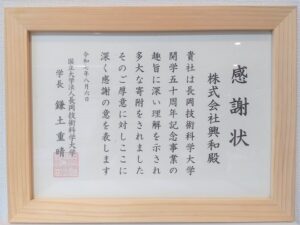 感謝状
株式会社興和殿
貴社は長岡技術科学大学
開学五十周年記念事業の
趣旨に深い理解を示され
多大な寄附をされました
そのご厚意に対しここに
深く感謝の意を表します
令和七年八月六日
国立大学法人長岡技術科学大学
学長 鎌土重晴